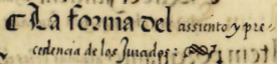 La forma del assiento y pre-
cedencia de los Iurados: